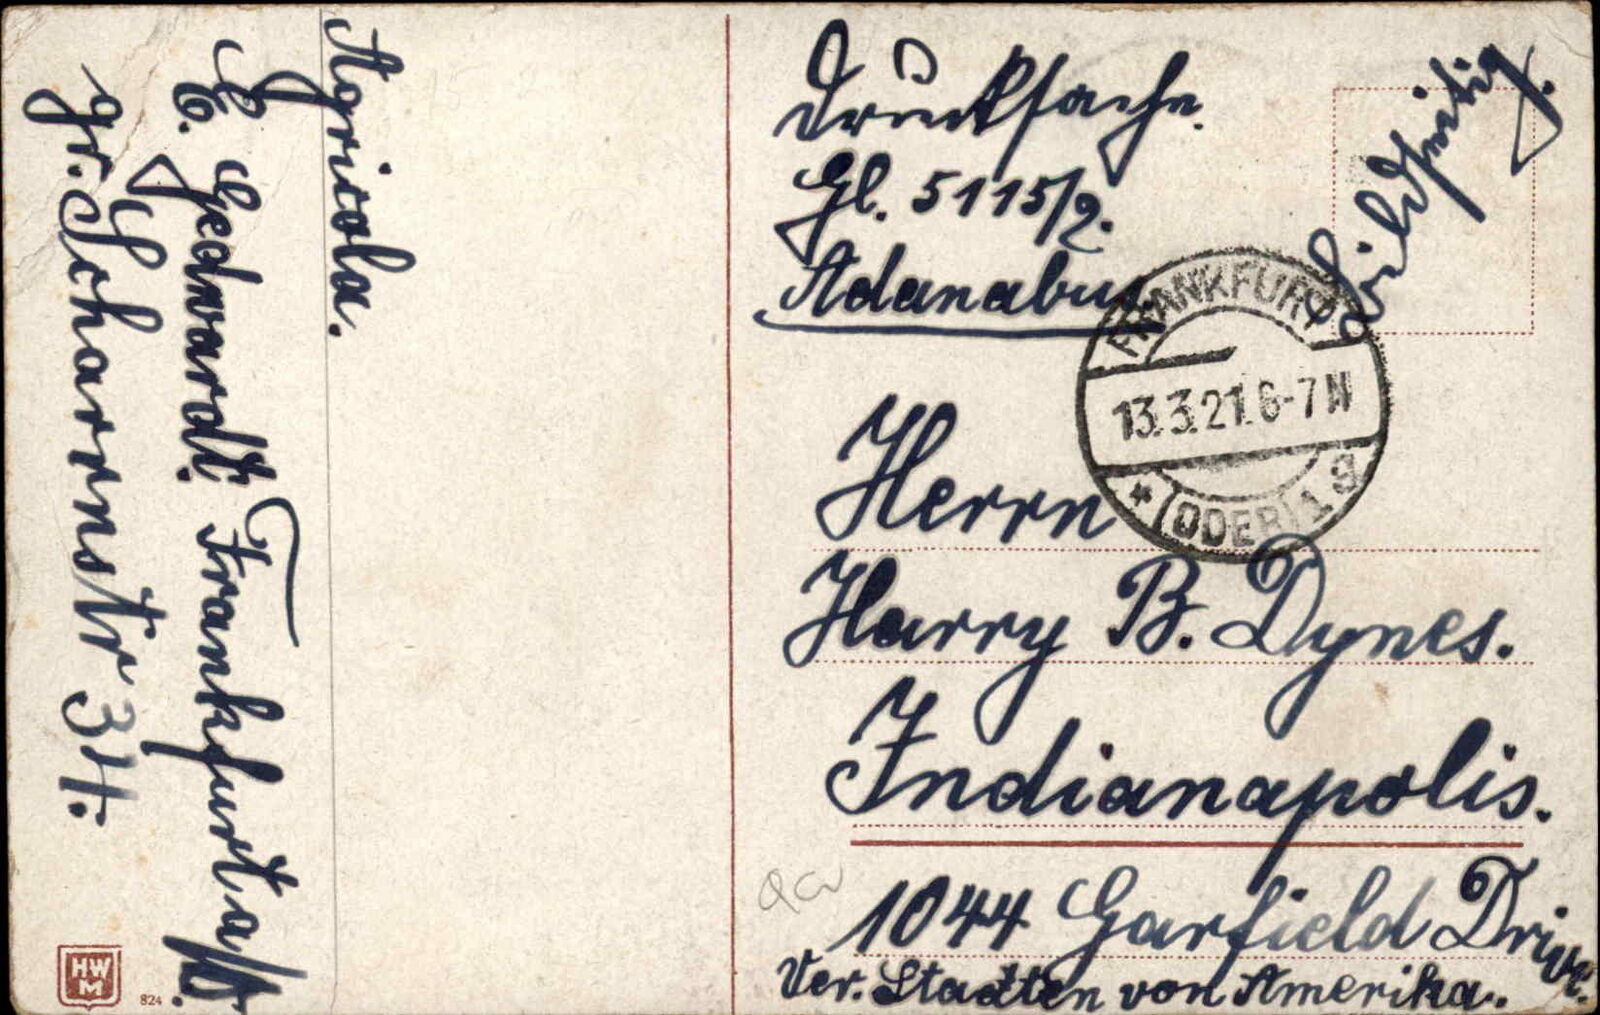 Agricola.
E. Gedwardt. Frankfurt a/O.
gr. Scharrnstr 34.
Drucksache.
Gl. 5115/2.
Adanabu
FRANKFURT
13.3.21.6-7N
* (ODER) 1 g
Herrn
Harry B. Dynes.
Indianapolis.
1044 Garfield Drive.
Ver. Staaten von Amerika.
HW
M
824